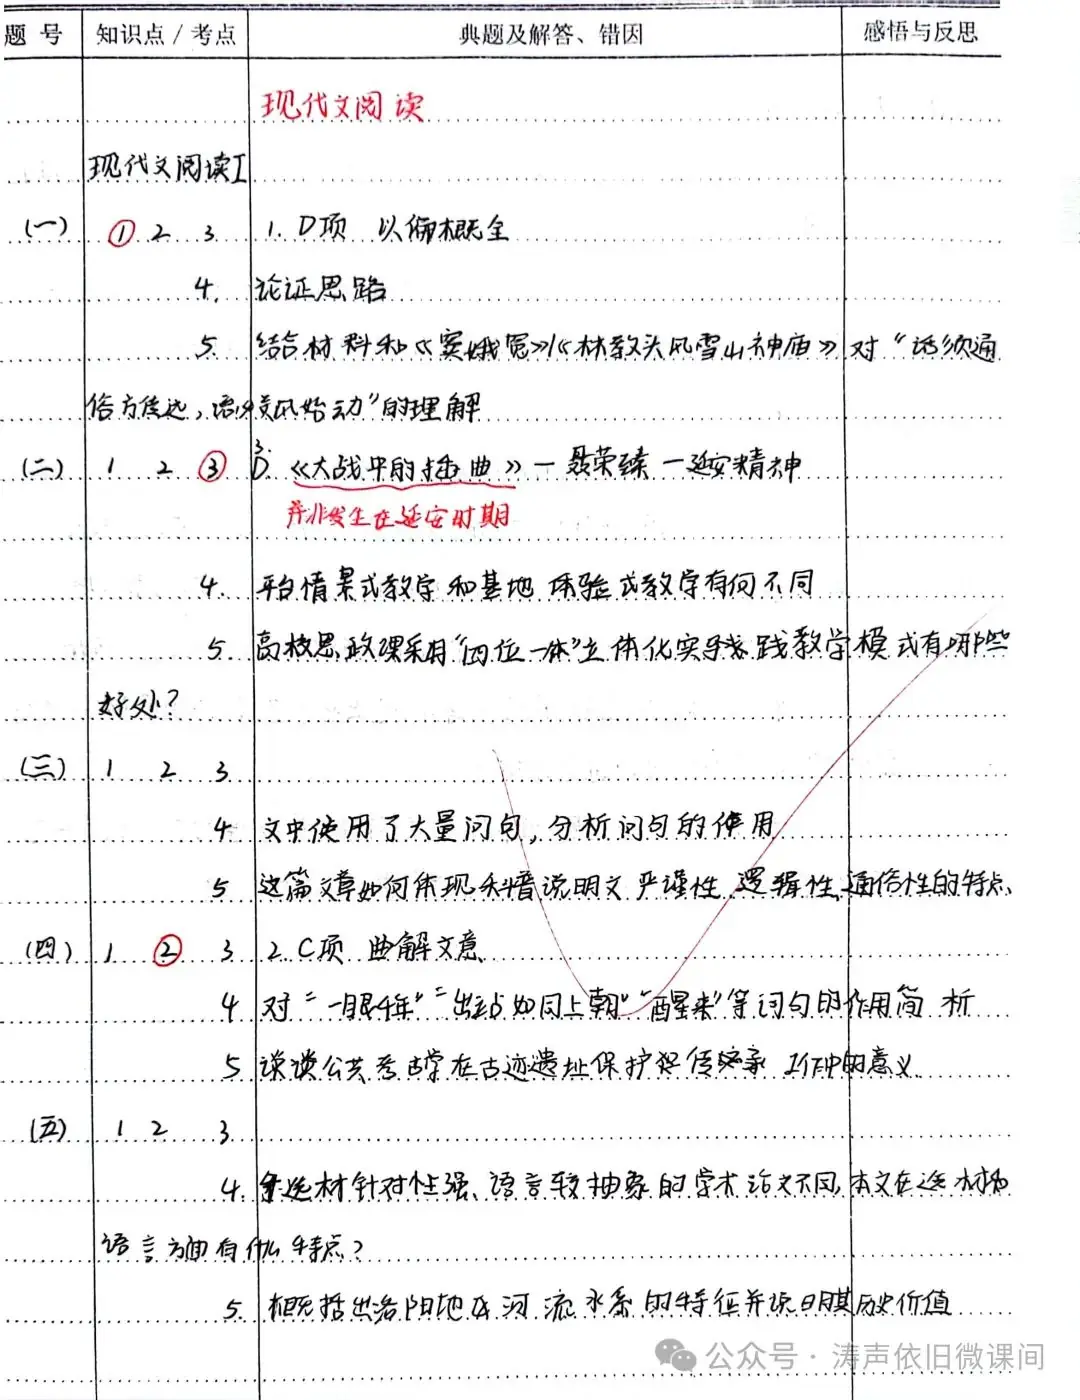 题 号 知识点 / 考点 典题及解答、错因 感悟与反思
现代文阅读
现代文阅读I
(一) ① 2 3 1. D项 以偏概全
4. 论证思路
5. 结合材料和《窦娥冤》/《林教头风雪山神庙》对“话须通
俗方传远，语必关风始动”的理解
(二) 1 2 ③ 3. D. 《大战中的插曲》—聂荣臻—延安精神
并非发生在延安时期
4. 平台情景式教学和基地体验式教学有何不同
5. 高校思政课采用“四位一体”立体化实践教学模式有哪些
好处?
(三) 1 2 3
4 文中使用了大量问句,分析问句的使用
5 这篇文章如何体现科普说明文严谨性、逻辑性、通俗性的特点.
(四) 1 ② 3 2. C项 曲解文意
4 对“一眼千年”“出站如同上朝”“醒来”等词句的作用简析
5 谈谈公共考古学在古迹遗址保护和传承工作中的意义.
(五) 1 2 3
4. 与选材针对性强、语言较抽象的学术论文不同,本文在选材和
语言方面有什么特点?
5. 概括出洛阳地区河流水系的特征并说明其历史价值
公众号 · 涛声依旧微课间